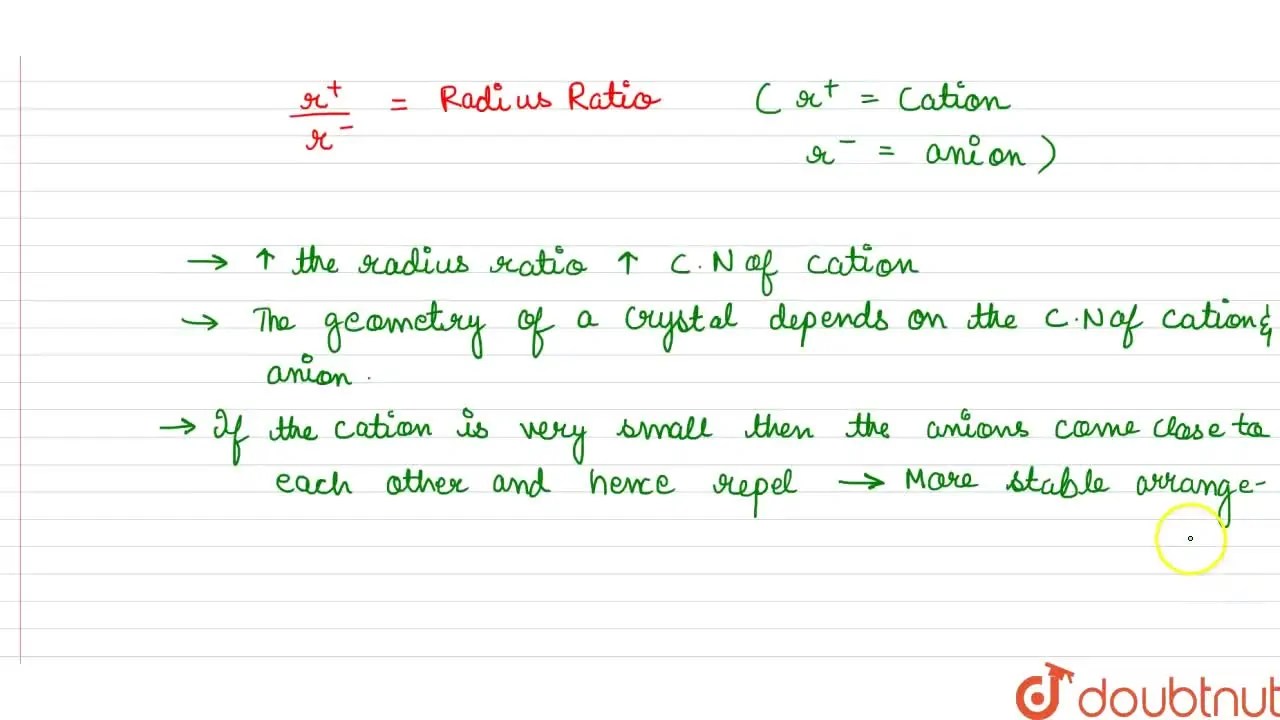 r⁺/r⁻ = Radius Ratio ( r⁺ = Cation
r⁻ = anion )
→ ↑ the radius ratio ↑ C.N of cation
→ The geometry of a crystal depends on the C.N of cation &
anion.
→ If the cation is very small then the anions come close to
each other and hence repel → More stable arrange-
doubtnut